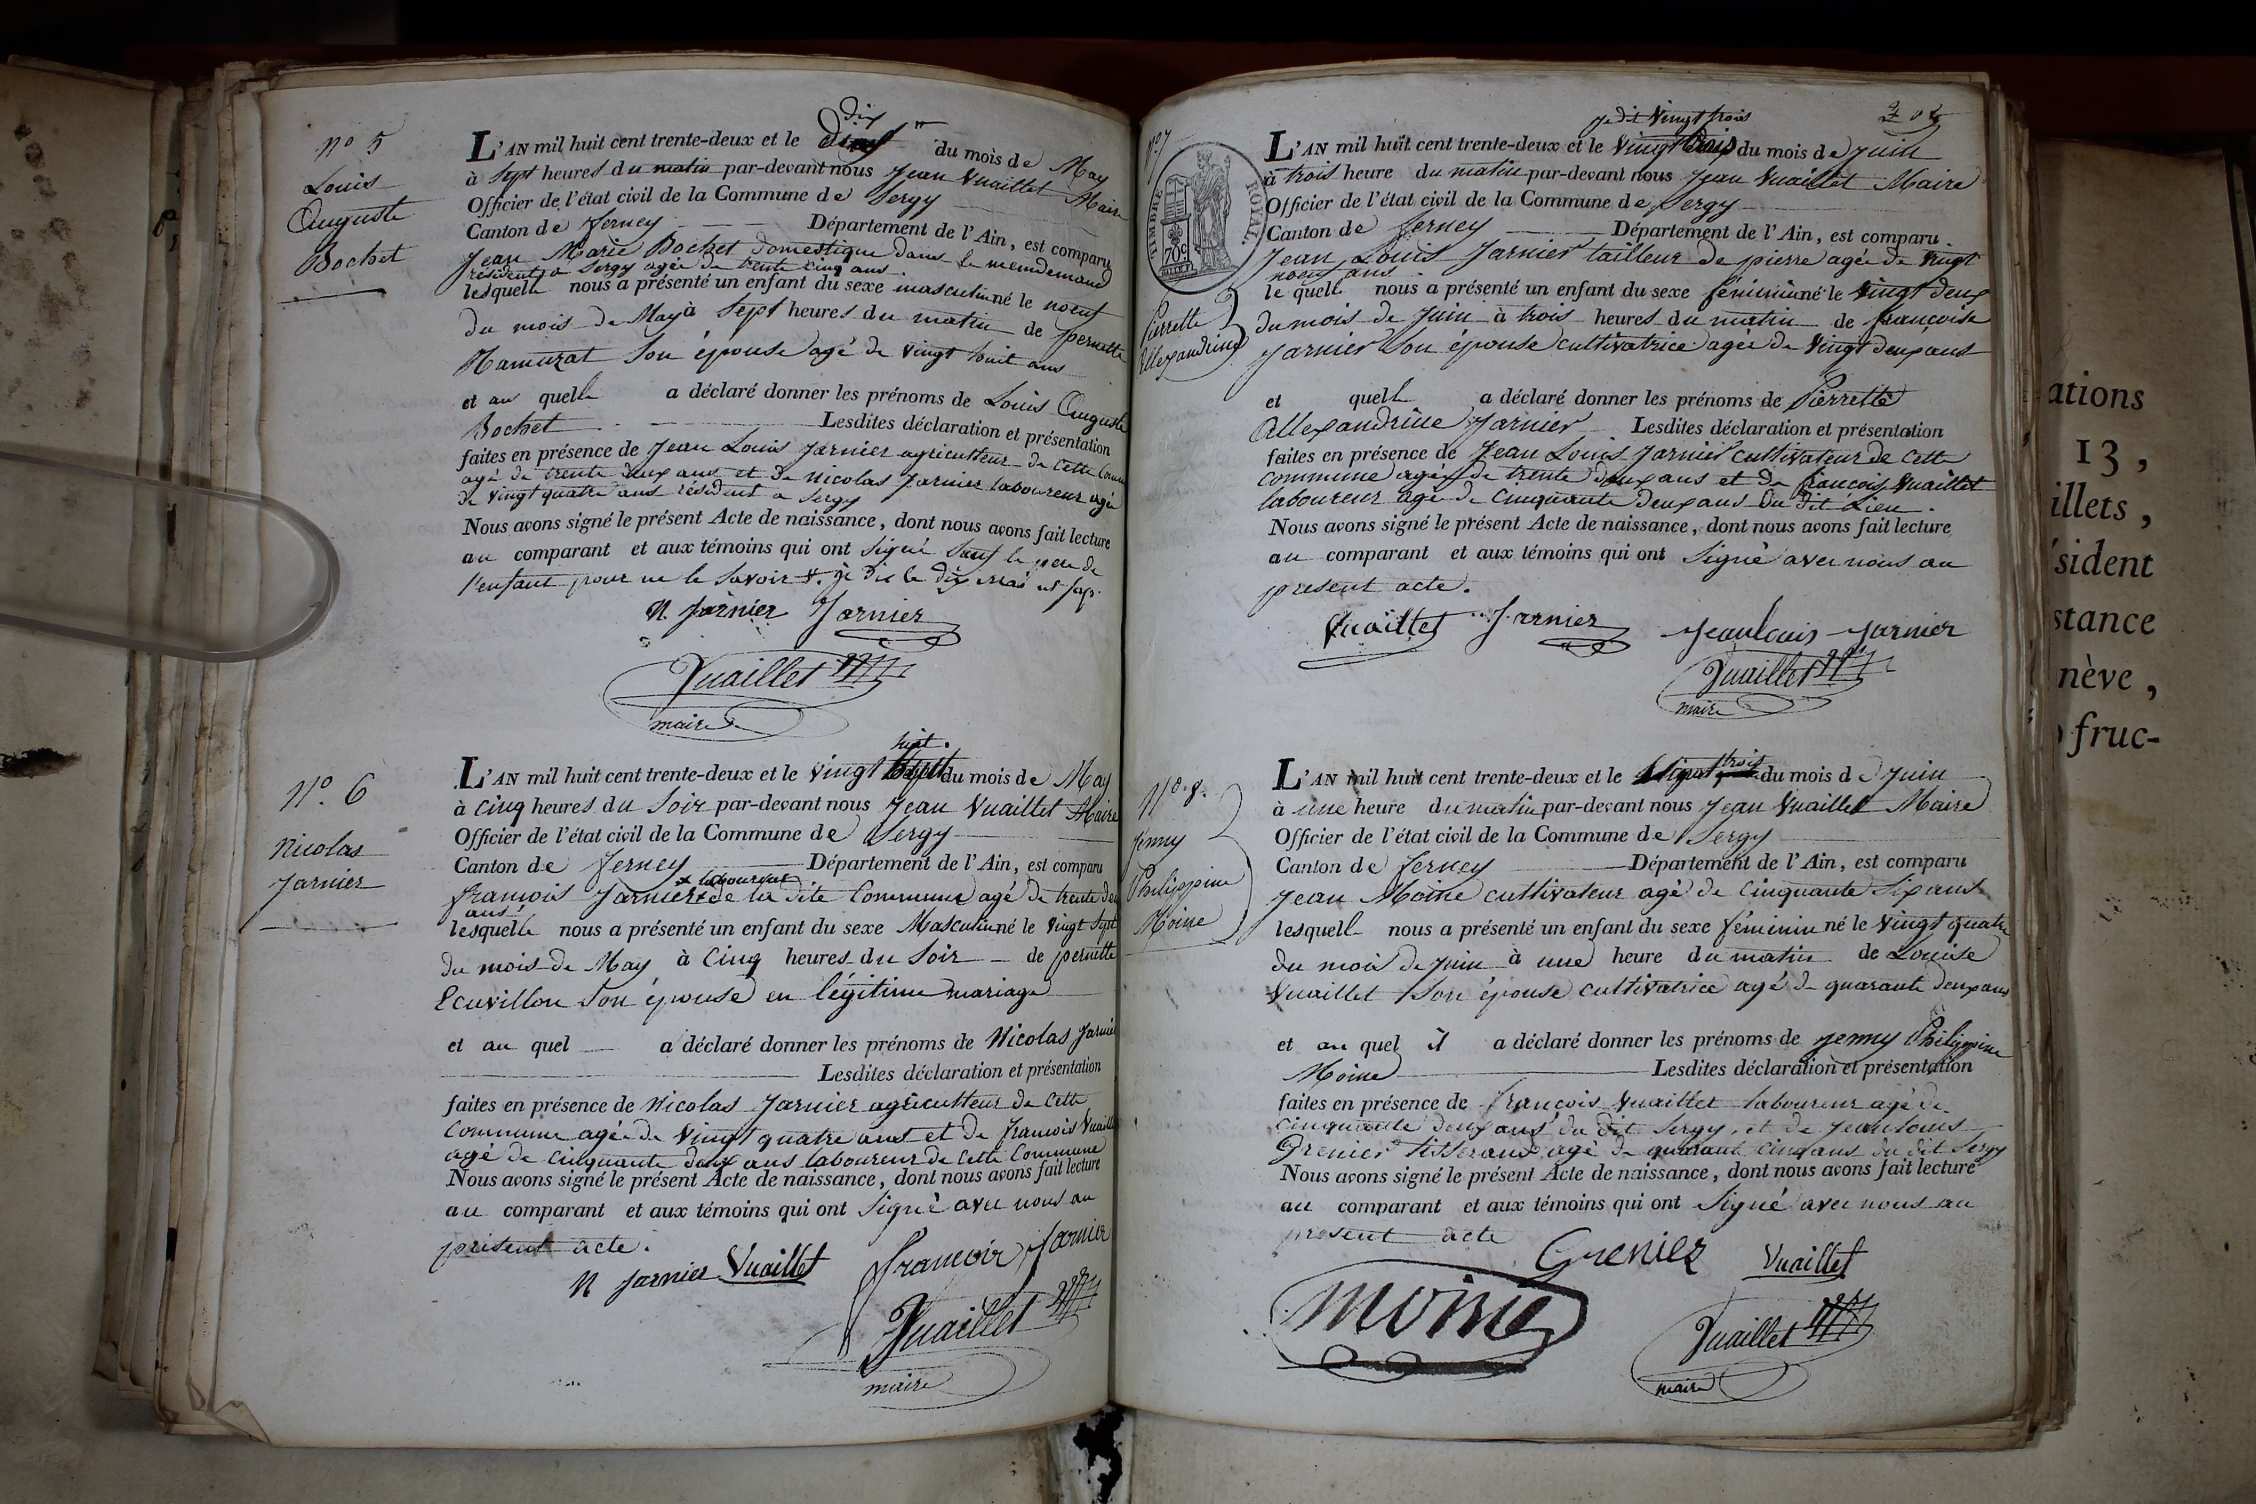 n° 5
Louis
Auguste
Bochet
dix
L'AN mil huit cent trente-deux et le du mois de May
à sept heures du matin par-devant nous Jean Vuaillet Maire
Officier de l'état civil de la Commune de Sergy
Canton de Ferney Département de l'Ain, est comparu
Jean Marie Bochet domestique dans le
résident a Sergy agée de trente cinq ans
lesquelle nous a présenté un enfant du sexe masculin né le noeuf
du mois de May à Sept heures du matin de pernette
son épouse agé de vingt huit ans
et au quelle a déclaré donner les prénoms de Louis Auguste
Bochet Lesdites déclaration et présentation
faites en présence de Jean Louis Jarnier agriculteur de cette
agé de trente deux ans et de Nicolas Jarnier laboureur agé
de vingt quatre ans résident a Sergy
Nous avons signé le présent Acte de naissance, dont nous avons fait lecture
au comparant et aux témoins qui ont signé sauf le pere de
l'enfant pour ne le savoir je dis le dix
N. Jarnier Jarnier
Vuaillet
maire
N°. 6
Nicolas
Jarnier
huit.
L'AN mil huit cent trente-deux et le vingt du mois de May
à cinq heures du Soir par-devant nous Jean Vuaillet Maire
Officier de l'état civil de la Commune de Sergy
Canton de Ferney Département de l'Ain, est comparu
laboureur
françois Jarnier de la dite Commune agé de trente
ans
lesquelle nous a présenté un enfant du sexe Masculin né le vingt sept
du mois de May à Cinq heures du Soir de pernette
Ecuvillon Son épouse en légitime mariage
et au quel a déclaré donner les prénoms de Nicolas Jarnier
Lesdites déclaration et présentation
faites en présence de Nicolas Jarnier agriculteur de Cette
Commune agé de Vingt quatre ans et de francois Vuaillet
agé de cinquante deux ans laboureur de Cette Commune
Nous avons signé le présent Acte de naissance, dont nous avons fait lecture
au comparant et aux témoins qui ont Signé avec nous au
présent acte.
N Jarnier Vuaillet François Jarnier
Vuaillet
maire
N°. 7
Pierrette
Allexandrine
TIMBRE ROYAL.
70c
je dit Vingt trois
L'AN mil huit cent trente-deux et le Vingt du mois de Juin
à trois heure du matin par-devant nous Jean Vuaillet Maire
Officier de l'état civil de la Commune de Sergy
Canton de Ferney Département de l'Ain, est comparu
Jean Louis Jarnier tailleur de pierre agée de vingt
noeuf ans
le quell nous a présenté un enfant du sexe féminin né le vingt deux
du mois de Juin à trois heures du matin de françoise
Jarnier Son épouse cultivatrice agée de Vingt deux ans
et quell a déclaré donner les prénoms de Pierrette
Allexandrine Jarnier Lesdites déclaration et présentation
faites en présence de Jean Louis Jarnier Cultivateur de Cette
commune agée de trente deux ans et de françois Vuaillet
laboureur agé de Cinquante deux ans du dit Lieu.
Nous avons signé le présent Acte de naissance, dont nous avons fait lecture
au comparant et aux témoins qui ont Signé avec nous au
present acte.
Vuaillet Jarnier Jean Louis Jarnier
Vuaillet
maire
N°. 8.
Jenny
Philippine
Moine
trois
L'AN mil huit cent trente-deux et le du mois de Juin
à une heure du matin par-devant nous Jean Vuaillet Maire
Officier de l'état civil de la Commune de Sergy
Canton de Ferney Département de l'Ain, est comparu
Jean Moine cultivateur agé de Cinquante Six ans
lesquell nous a présenté un enfant du sexe féminin né le vingt quatre
du mois de Juin à une heure du matin de Louise
Vuaillet Son épouse Cultivatrice agé de quarante deux ans
et au quel il a déclaré donner les prénoms de Jenny Philippine
Moine Lesdites déclaration et présentation
faites en présence de françois Vuaillet laboureur agé de
cinquante deux ans du dit Sergy, et de Jean Louis
Grenier tisserand agé de quarant cinq ans du dit Sergy
Nous avons signé le présent Acte de naissance, dont nous avons fait lecture
au comparant et aux témoins qui ont Signé avec nous au
present acte
Grenier Vuaillet
moine
Vuaillet
maire
ations
13,
illets,
sident
stance
nève,
fruc-